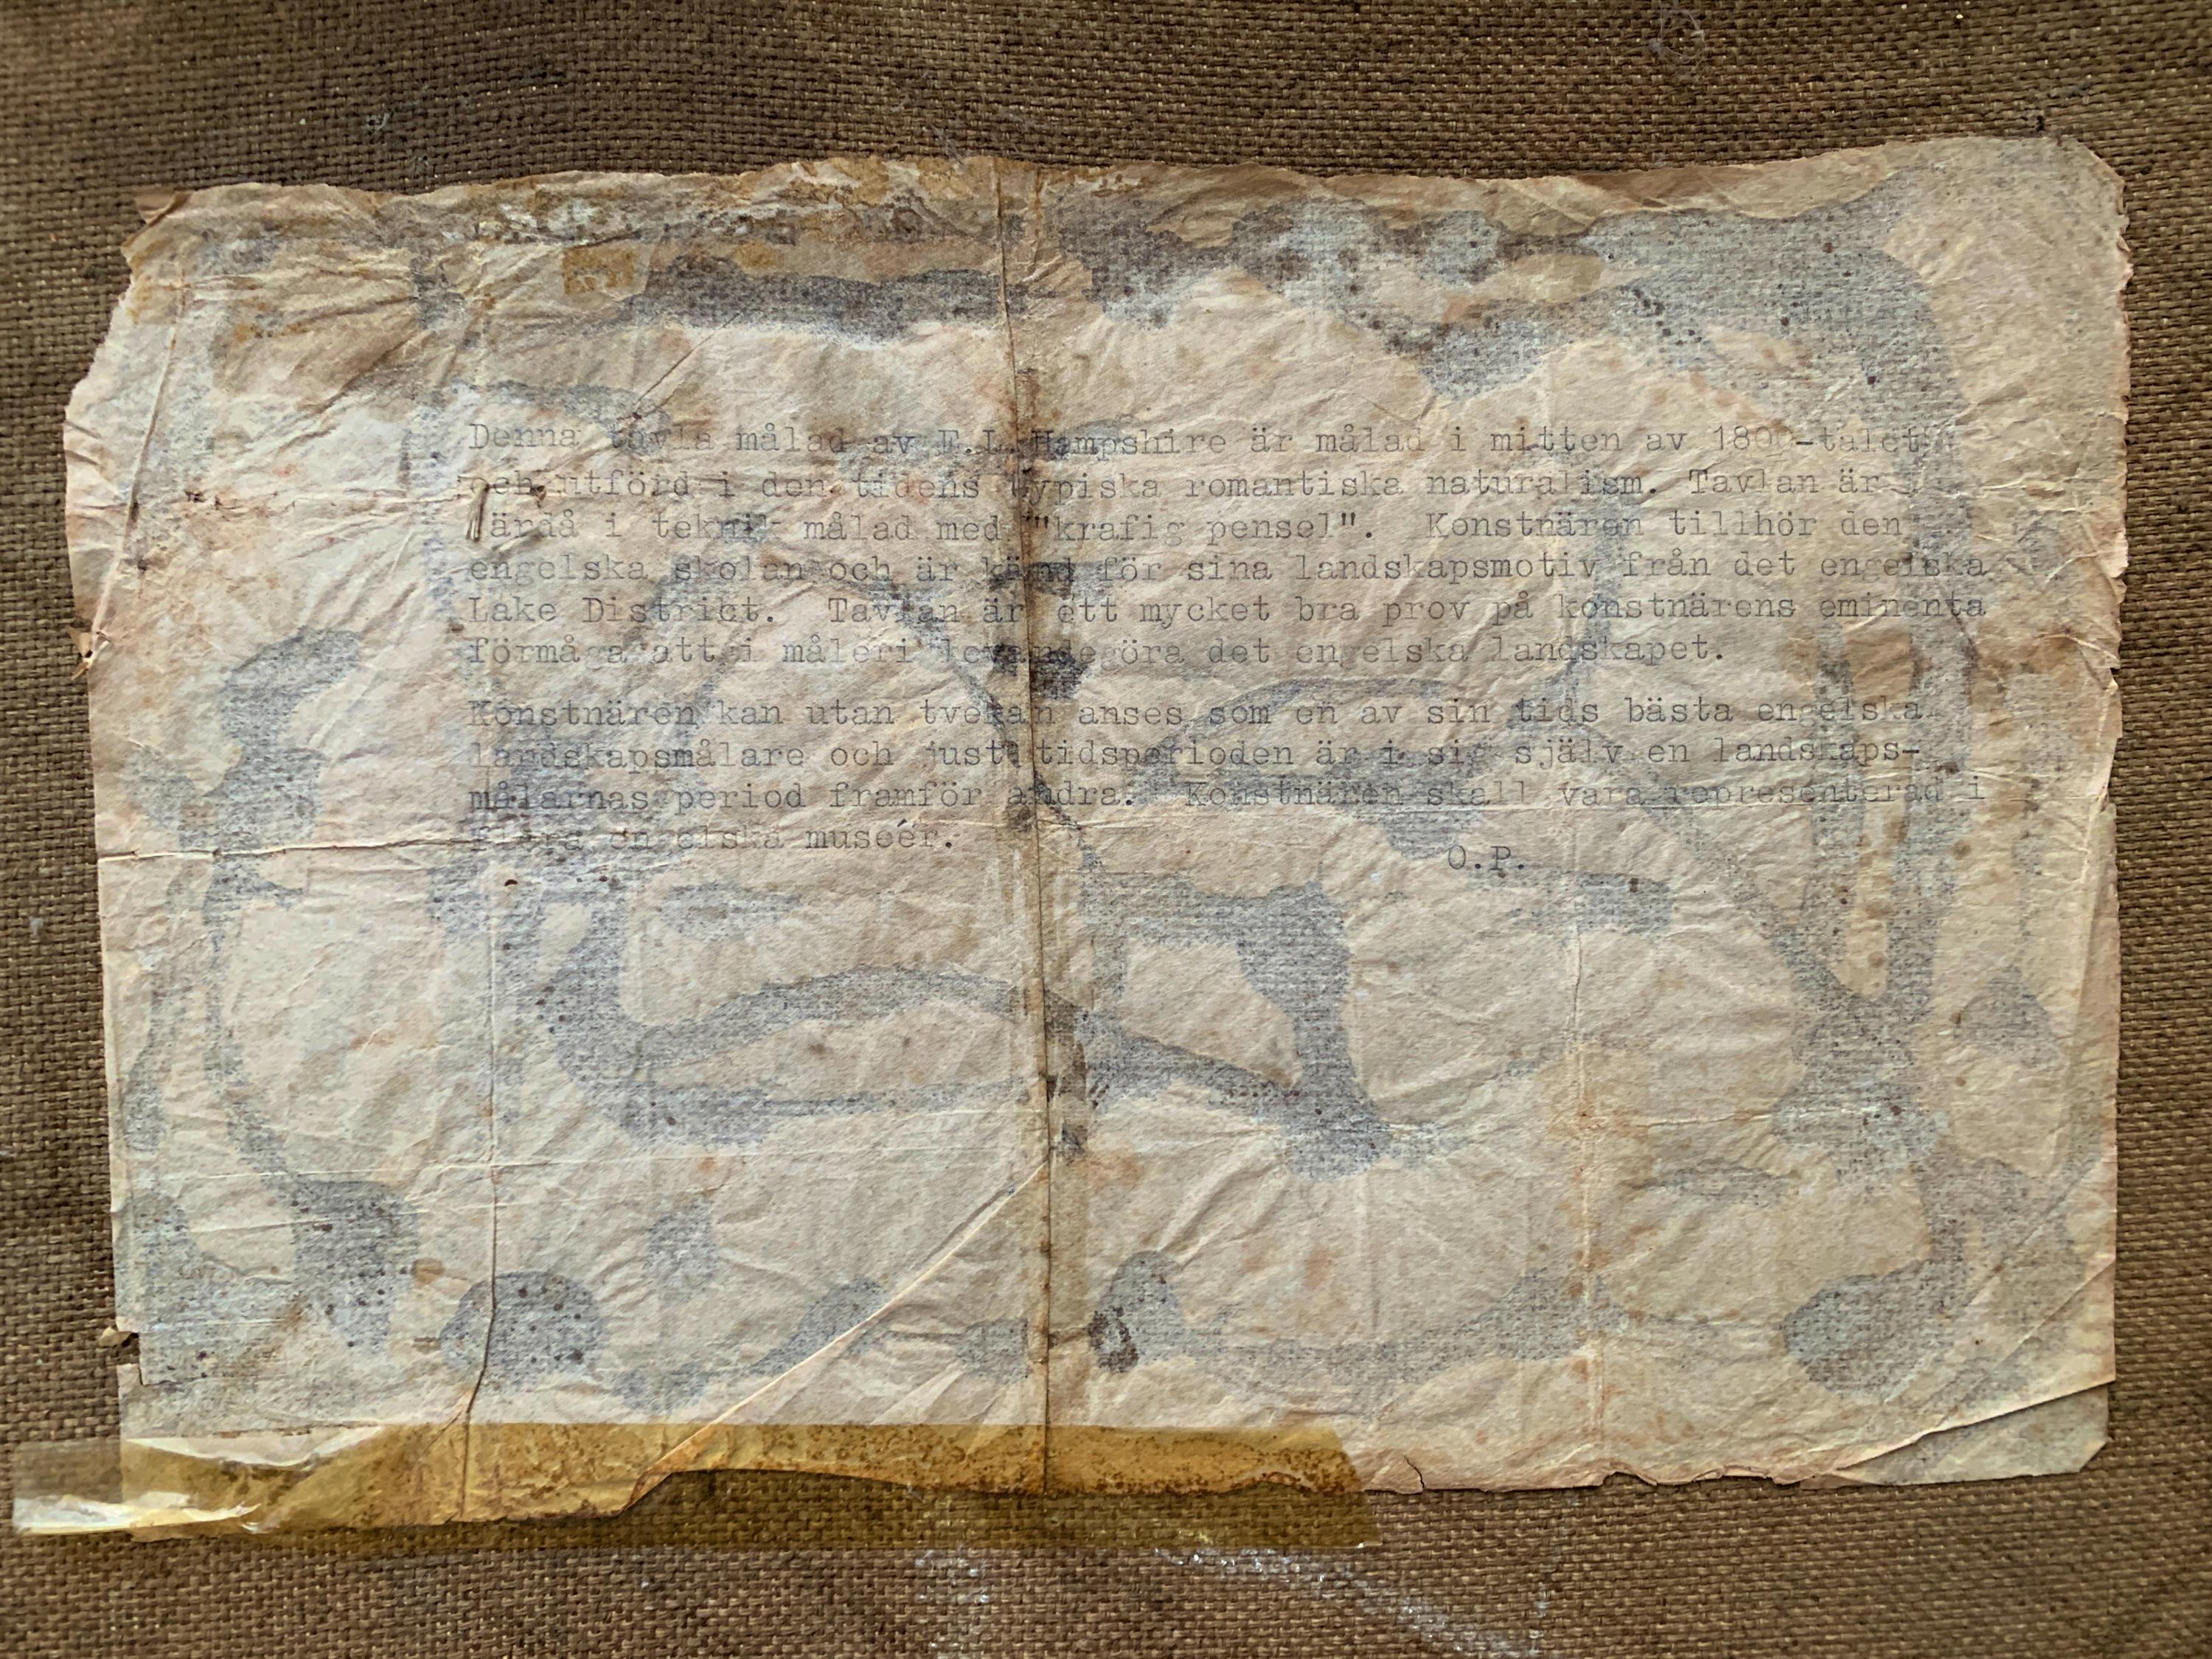 Denna tavla målad av E.L.Hampshire är målad i mitten av 1800-talet
och utförd i den tidens typiska romantiska naturalism. Tavlan är
i teknik målad med ""krafig pensel". Konstnären tillhör den
engelska skolan och är känd för sina landskapsmotiv från det engelska
Lake District. Tavlan är ett mycket bra prov på konstnärens eminenta
förmåga att i måleri levandegöra det engelska landskapet.
Konstnären kan utan tvekan anses som en av sin tids bästa engelska
landskapsmålare och just tidsperioden är i sig själv en landskaps-
målarnas period framför andra. Konstnären skall vara representerad i
flera engelska museer.
O.P.